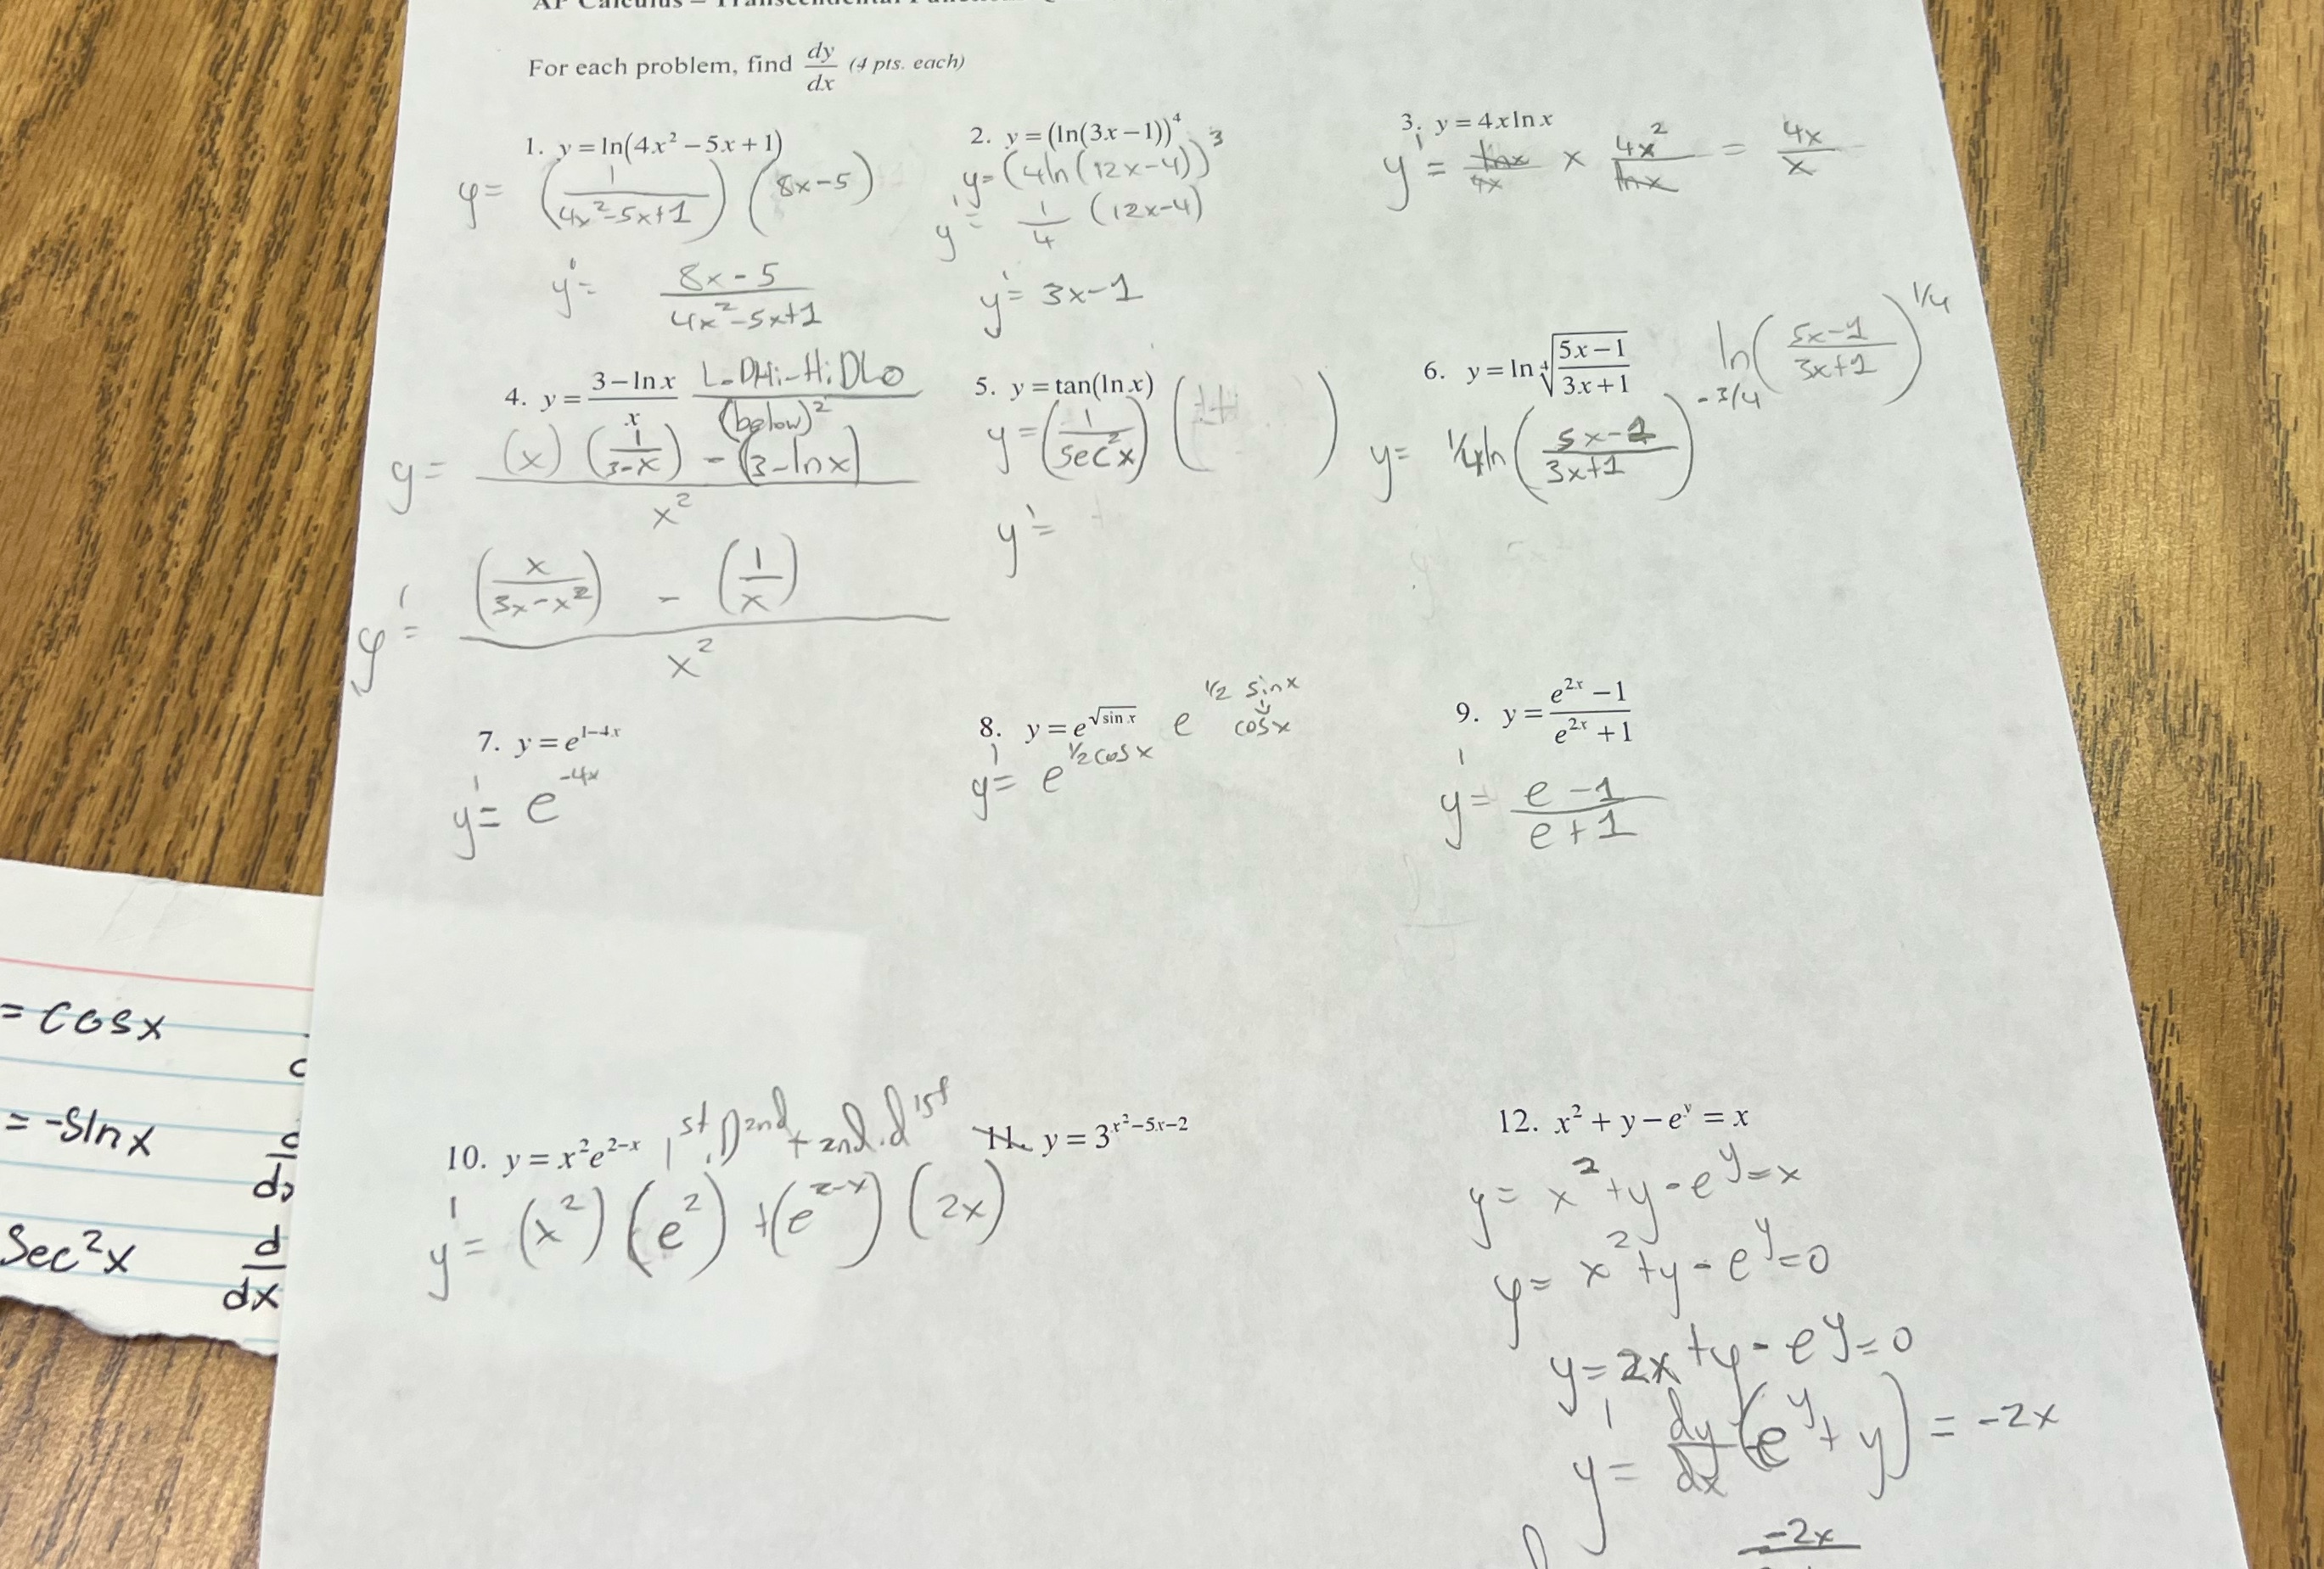 For each problem, find dy/dx (4 pts. each)
1. y = ln(4x² − 5x + 1)
y = (1/(4x²−5x+1)) (8x−5)
y' = (8x−5)/(4x²−5x+1)
2. y = (ln(3x−1))⁴
y = (4ln(12x−4))³
y' = 1/4 (12x−4)
y' = 3x−1
3. y = 4x ln x
y' = lnx/4x × 4x²/lnx = 4x/x
4. y = (3 − ln x)/x
LoDHi−HiDLo/(below)²
y = ((x)(1/(3−x)) − (3−lnx))/x²
y' = ((x/(3x−x²)) − (1/x))/x²
5. y = tan(ln x)
y = (1/sec²x) ( )
y' =
6. y = ln ⁴√((5x−1)/(3x+1))
ln((5x−1)/(3x+1))^1/4
y = 1/4 ln((5x−1)/(3x+1))^−3/4
7. y = e^(1−4x)
y' = e^(−4x)
8. y = e^√(sin x)
e^(1/2 sinx)
↓
cosx
y' = e^(1/2 cosx)
9. y = (e^(2x) − 1)/(e^(2x) + 1)
y' = (e−1)/(e+1)
10. y = x²e^(2−x)
1st.D2nd + 2nd.d1st
y' = (x²)(e²) + (e^(2−x))(2x)
11. y = 3^(x²−5x−2)
12. x² + y − e^y = x
y = x² + y − e^y = x
y = x² + y − e^y = 0
y = 2x + y − e^y = 0
y' = dy/dx (e^y + y) = −2x
−2x
= cosx
= -sinx
Sec²x
d/dx